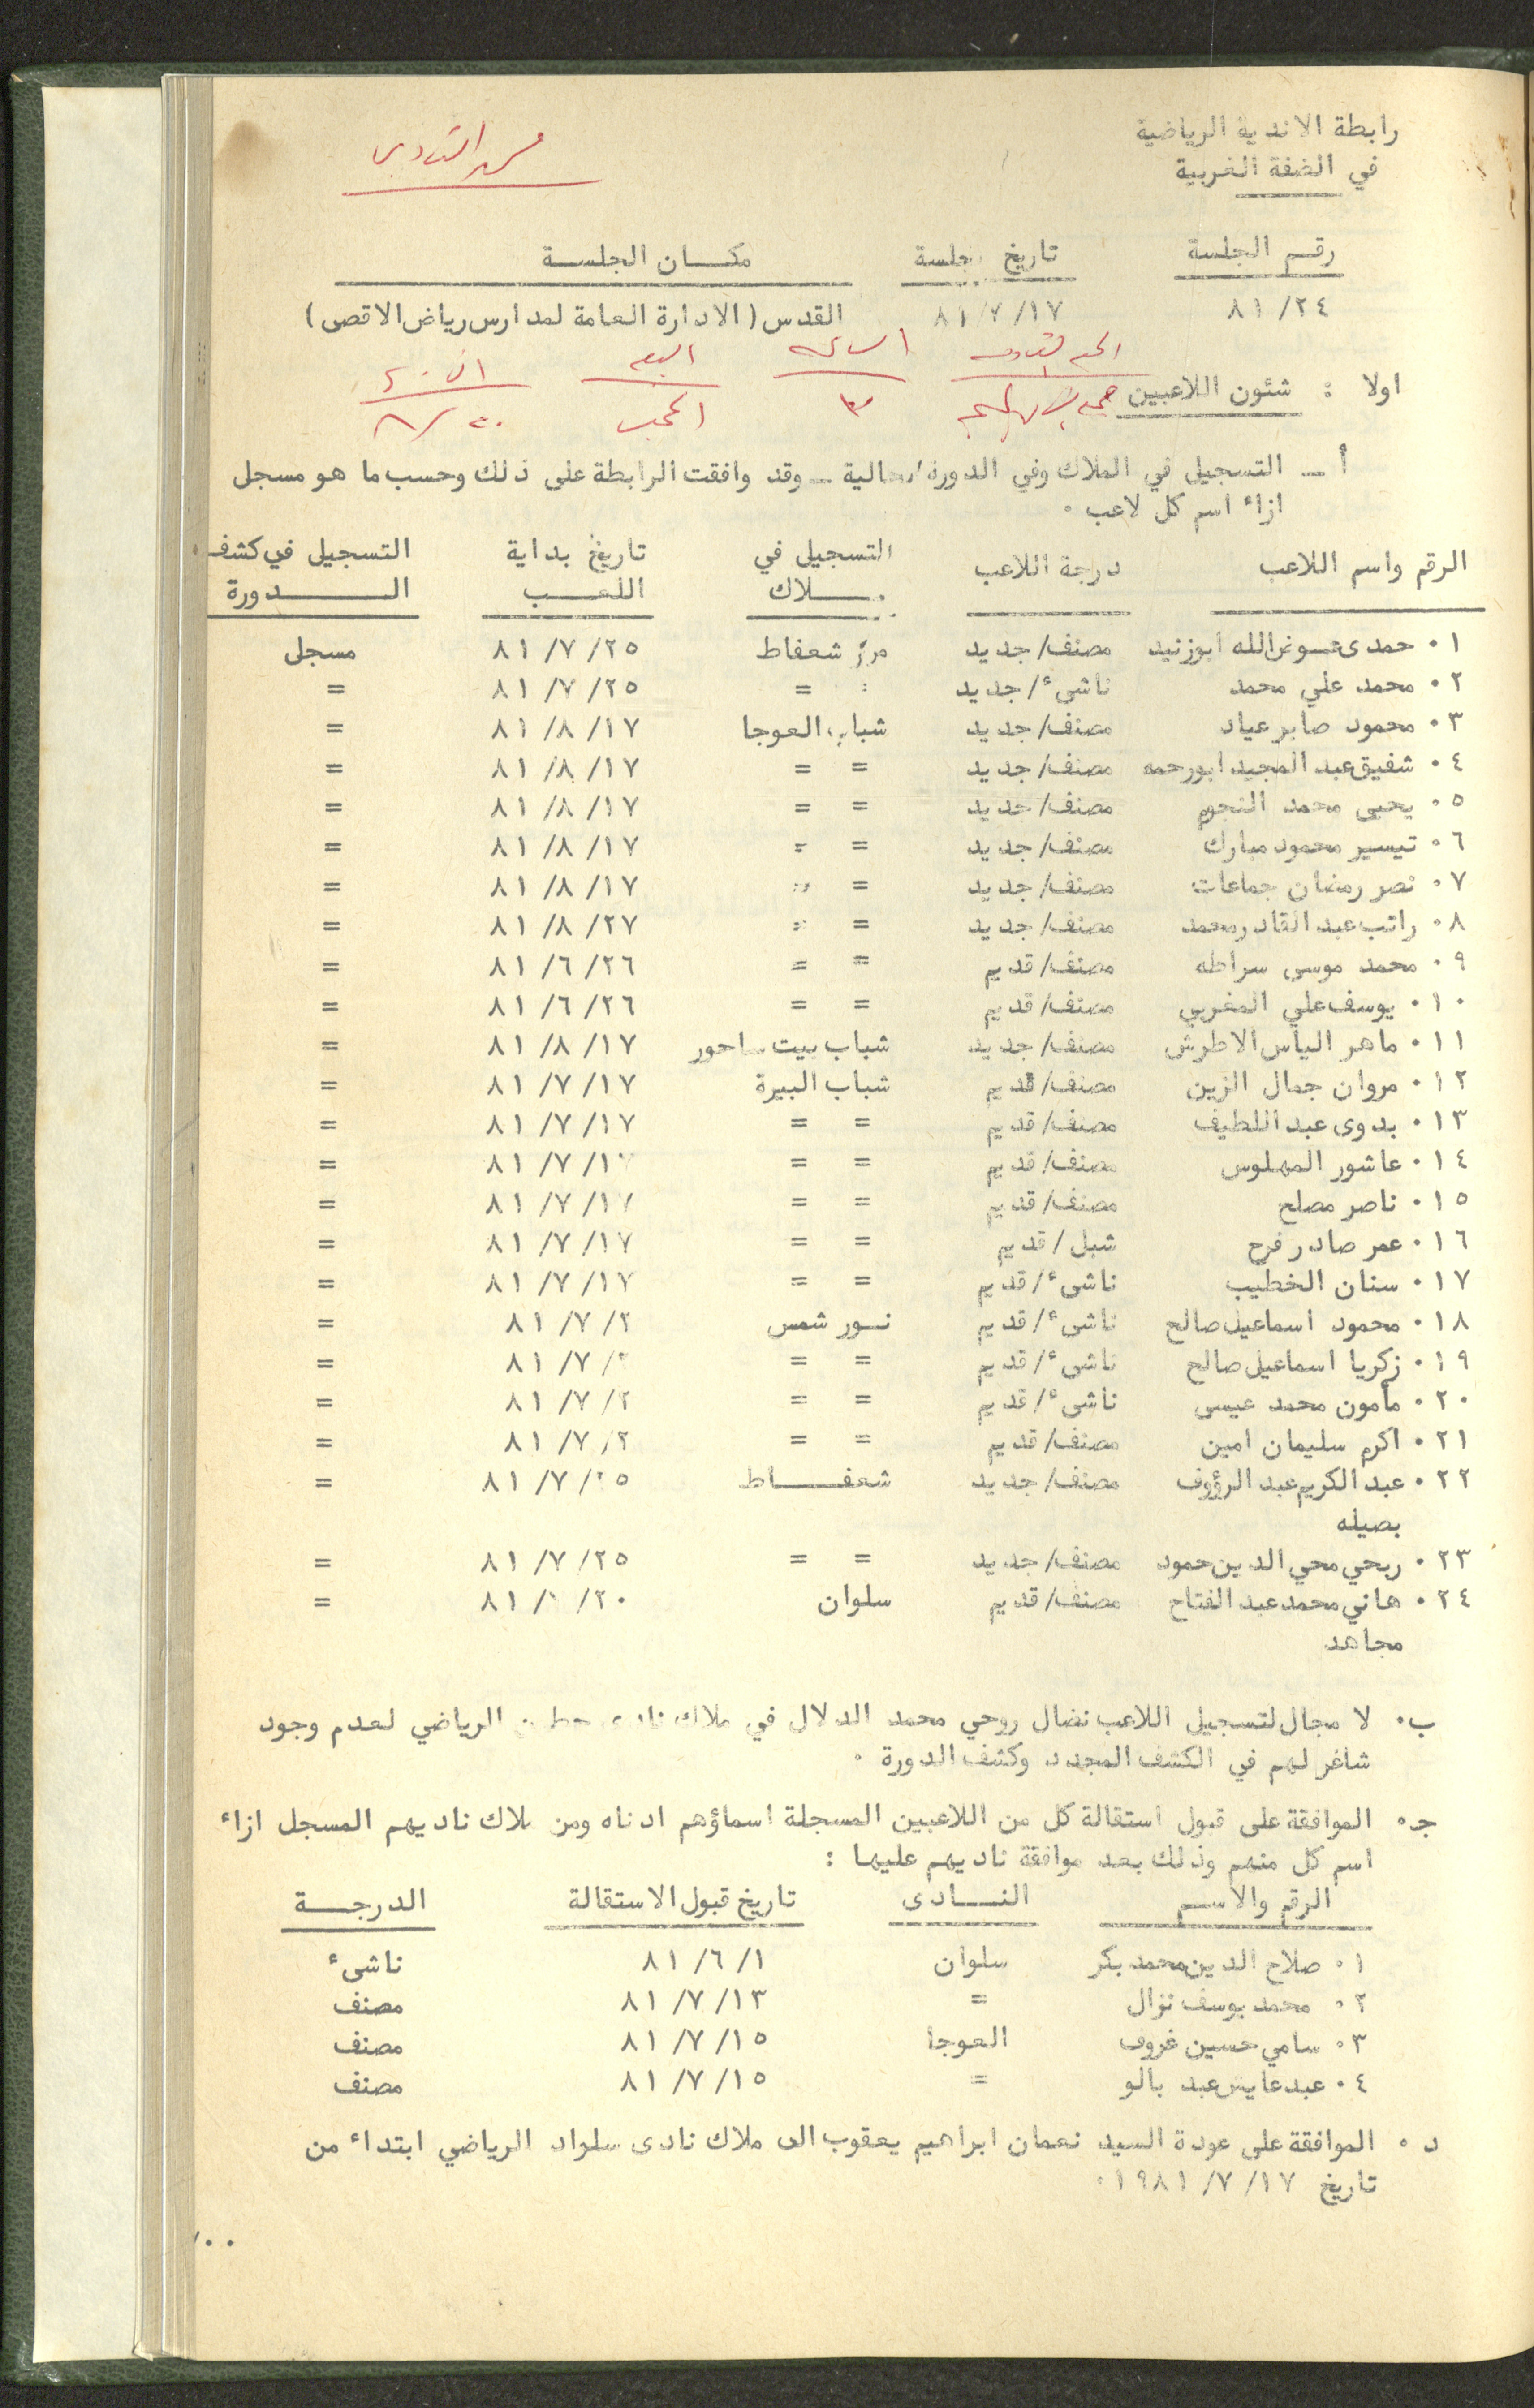 رابطة الاندية الرياضية
في الضفة الغربية
رقم الجلسة تاريخ جلسة مكان الجلسة
٨١/٢٤ ٨١/٧/١٧ القدس (الادارة العامة لمدارس رياض الاقصى)
اولا : شئون اللاعبين
أ - التسجيل في الملاك وفي الدورة الحالية - وقد وافقت الرابطة على ذلك وحسب ما هو مسجل
ازاء اسم كل لاعب .
الرقم واسم اللاعب درجة اللاعب التسجيل في تاريخ بداية التسجيل في كشف
ملاك اللعب الدورة
١. حمدى عوض الله ابوزنيد مصنف/جديد مركز شعفاط ٨١/٧/٢٥ مسجل
٢. محمد علي محمد ناشىء/جديد = = ٨١/٧/٢٥ =
٣. محمود صابر عياد مصنف/جديد شباب العوجا ٨١/٨/١٧ =
٤. شفيق عبد المجيد ابورحمه مصنف/جديد = = ٨١/٨/١٧ =
٥. يحيى محمد النجوم مصنف/جديد = = ٨١/٨/١٧ =
٦. تيسير محمود مبارك مصنف/جديد = = ٨١/٨/١٧ =
٧. نصر رمضان جماعات مصنف/جديد = = ٨١/٨/١٧ =
٨. راتب عبد القادر محمد مصنف/جديد = = ٨١/٨/٢٧ =
٩. محمد موسى سراطه مصنف/قديم = = ٨١/٦/٢٦ =
١٠. يوسف علي المغربي مصنف/قديم = = ٨١/٦/٢٦ =
١١. ماهر الياس الاطرش مصنف/جديد شباب بيت ساحور ٨١/٨/١٧ =
١٢. مروان جمال الزين مصنف/قديم شباب البيرة ٨١/٧/١٧ =
١٣. بدوى عبد اللطيف مصنف/قديم = = ٨١/٧/١٧ =
١٤. عاشور المهلوس مصنف/قديم = = ٨١/٧/١٧ =
١٥. ناصر مصلح مصنف/قديم = = ٨١/٧/١٧ =
١٦. عمر صادر فرح شبل/قديم = = ٨١/٧/١٧ =
١٧. سنان الخطيب ناشىء/قديم = = ٨١/٧/١٧ =
١٨. محمود اسماعيل صالح ناشىء/قديم نور شمس ٨١/٧/٢ =
١٩. زكريا اسماعيل صالح ناشىء/قديم = = ٨١/٧/٢ =
٢٠. مأمون محمد عيسى ناشىء/قديم = = ٨١/٧/٢ =
٢١. اكرم سليمان امين مصنف/قديم = = ٨١/٧/٢ =
٢٢. عبد الكريم عبد الرؤوف مصنف/جديد شعفاط ٨١/٧/٢٥ =
بصيله
٢٣. ربحي محي الدين حمود مصنف/جديد = = ٨١/٧/٢٥ =
٢٤. هاني محمد عبد الفتاح مصنف/قديم سلوان =
مجاهد
ب. لا مجال لتسجيل اللاعب نضال روحي محمد الدلال في ملاك نادى حطين الرياضي لعدم وجود
شاغر لهم في الكشف المجدد وكشف الدورة .
ج. الموافقة على قبول استقالة كل من اللاعبين المسجلة اسماؤهم ادناه ومن ملاك ناديهم المسجل ازاء
اسم كل منهم وذلك بعد موافقة ناديهم عليها :
الرقم والاسم النادى تاريخ قبول الاستقالة الدرجة
١. صلاح الدين محمد بكر سلوان ٨١/٦/١ ناشىء
٢. محمد يوسف نزال = ٨١/٧/١٣ مصنف
٣. سامي حسين غروف العوجا ٨١/٧/١٥ مصنف
٤. عبد عايش عبد بالو = ٨١/٧/١٥ مصنف
د. الموافقة على عودة السيد نعمان ابراهيم يعقوب الى ملاك نادى سلواد الرياضي ابتداء من
تاريخ ١٩٨١/٧/١٧.
/..